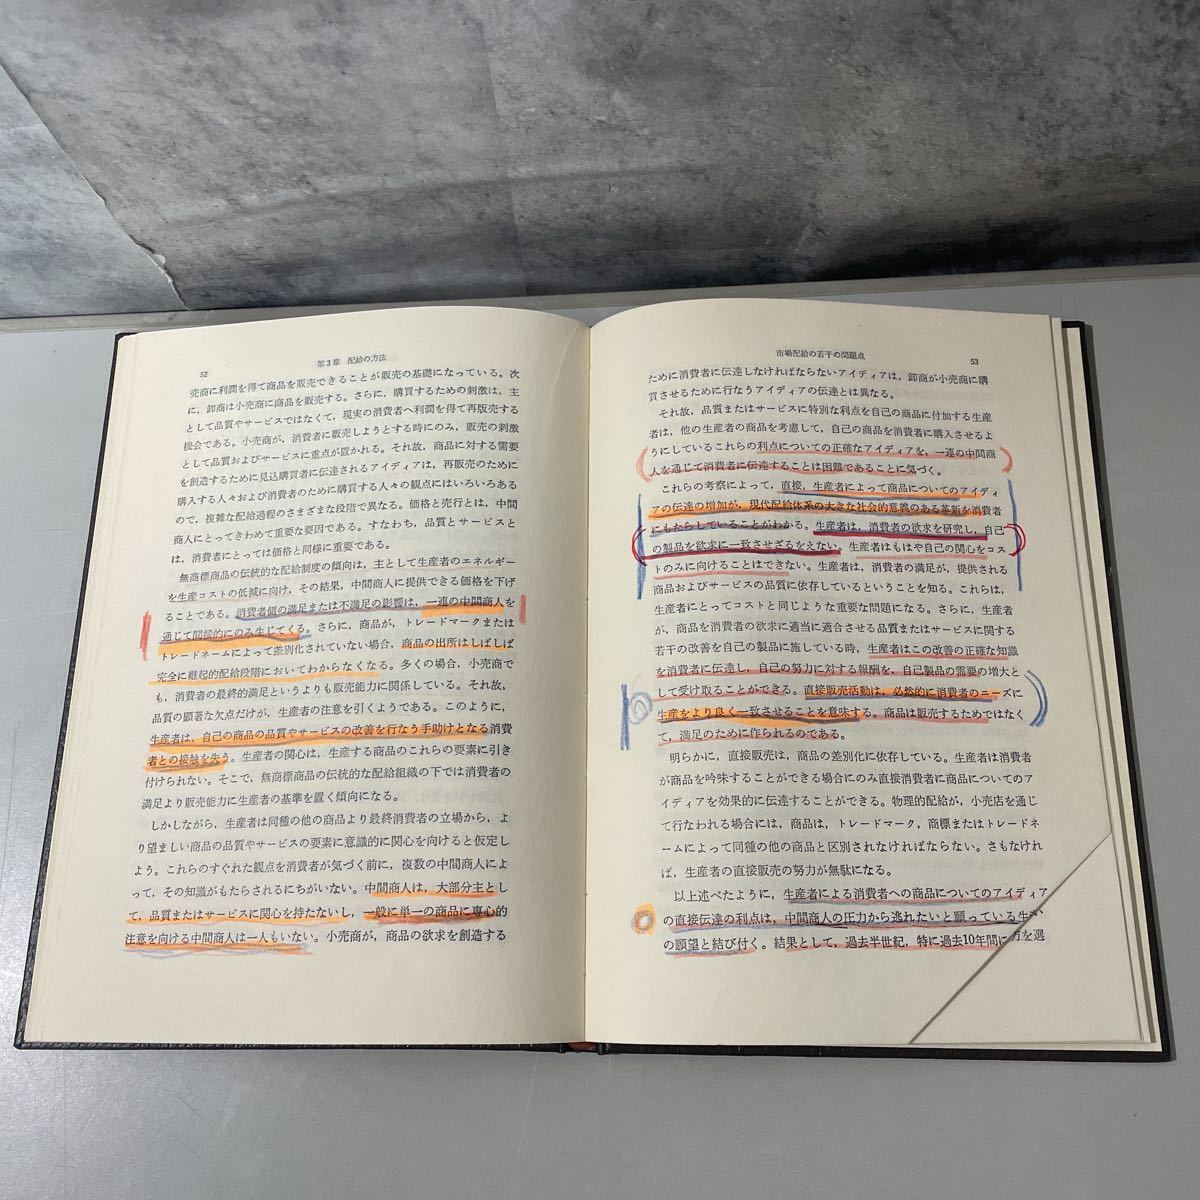 52
第3章 配給の方法
売商に利潤を得て商品を販売できることが販売の基礎になっている。次
に,卸商は小売商に商品を販売する。さらに,購買するための刺激は,主
として品質やサービスではなくて,現実の消費者へ利潤を得て再版売する
機会である。小売商が,消費者に販売しようとする時にのみ,販売の刺激
として品質およびサービスに重点が置かれる。それ故,商品に対する需要
を創造するために見込購買者に伝達されるアイディアは,再販売のために
購入する人々および消費者のために購買する人々の観点にはいろいろある
ので,複雑な配給過程のさまざまな段階で異なる。価格と売行とは,中間
商人にとってきわめて重要な要因である。すなわち,品質とサービスと
は,消費者にとっては価格と同様に重要である。
無商標商品の伝統的な配給制度の傾向は,主として生産者のエネルギー
を生産コストの低減に向け,その結果,中間商人に提供できる価格を下げ
ることである。消費者個の満足または不満足の影響は,一連の中間商人を
通じて間接的にのみ生じてくる。さらに,商品が,トレードマークまたは
トレードネームによって差別化されていない場合,商品の出所はしばしば
完全に継起的配給段階においてわからなくなる。多くの場合,小売商で
も,消費者の最終的満足というよりも販売能力に関係している。それ故,
品質の顕著な欠点だけが,生産者の注意を引くようである。このように,
生産者は,自己の商品の品質やサービスの改善を行なう手助けとなる消費
者との接触を失う。生産者の関心は,生産する商品のこれらの要素に引き
付けられない。そこで,無商標商品の伝統的な配給組織の下では消費者の
満足より販売能力に生産者の基準を置く傾向になる。
しかしながら,生産者は同種の他の商品より最終消費者の立場から,よ
り望ましい商品の品質やサービスの要素に意識的に関心を向けると仮定し
よう。これらのすぐれた観点を消費者が気づく前に,複数の中間商人によ
って,その知識がもたらされるにちがいない。中間商人は,大部分主とし
て,品質またはサービスに関心を持たないし,一般に単一の商品に専心的
注意を向ける中間商人は一人もいない。小売商が,商品の欲求を創造する
市場配給の若干の問題点
53
ために消費者に伝達しなければならないアイディアは,卸商が小売商に購
買させるために行なうアイディアの伝達とは異なる。
それ故,品質またはサービスに特別な利点を自己の商品に付加する生産
者は,他の生産者の商品を考慮して,自己の商品を消費者に購入させるよ
うにしているこれらの利点についての正確なアイディアを,一連の中間商
人を通じて消費者に伝達することは困難であることに気づく。
これらの考察によって,直接,生産者によって商品についてのアイディ
アの伝達の増加が,現代配給体系の大きな社会的意義のある革新を消費者
にもたらしていることがわかる。生産者は,消費者の欲求を研究し,自己
の製品を欲求に一致させざるをえない。生産者はもはや自己の関心をコス
トのみに向けることはできない。生産者は,消費者の満足が,提供される
商品およびサービスの品質に依存しているということを知る。これらは,
生産者にとってコストと同じような重要な問題になる。さらに,生産者
が,商品を消費者の欲求に適当に適合させる品質またはサービスに関する
若干の改善を自己の製品に施している時,生産者はこの改善の正確な知識
を消費者に伝達し,自己の努力に対する報酬を,自己製品の需要の増大と
して受け取ることができる。直接販売活動は,必然的に消費者のニーズに
生産をより良く一致させることを意味する。商品は販売するためではなく
て,満足のために作られるのである。
明らかに,直接販売は,商品の差別化に依存している。生産者は消費者
が商品を吟味することができる場合にのみ直接消費者に商品についてのア
イディアを効果的に伝達することができる。物理的配給が,小売店を通じ
て行なわれる場合には,商品は,トレードマーク,商標またはトレードネ
ームによって同種の他の商品と区別されなければならない。さもなけれ
ば,生産者の直接販売の努力が無駄になる。
以上述べたように,生産者による消費者への商品についてのアイディア
の直接伝達の利点は,中間商人の圧力から逃れたいと願っている生
の願望と結び付く。結果として,過去半世紀,特に過去10年間に
方を選